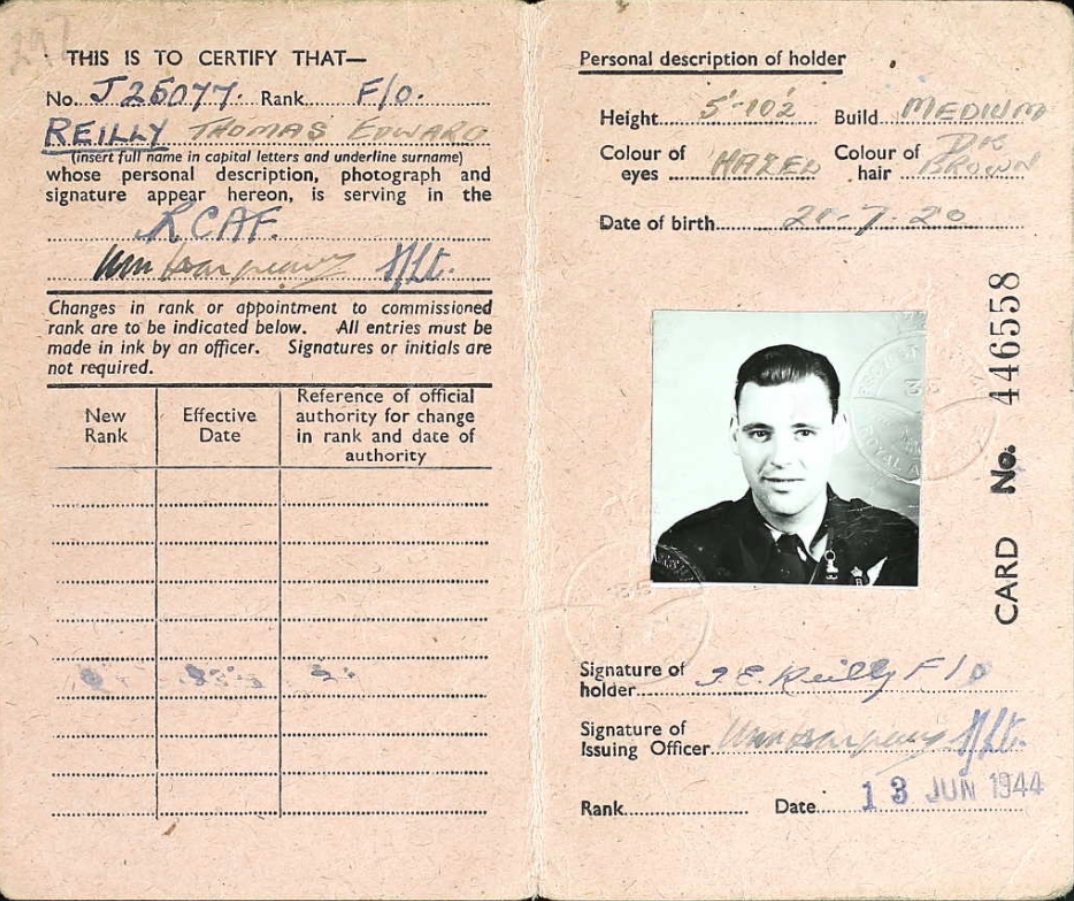 THIS IS TO CERTIFY THAT—
No. J25077. Rank F/O.
REILLY THOMAS EDWARD
(insert full name in capital letters and underline surname)
whose personal description, photograph and
signature appear hereon, is serving in the
RCAF.
F/Lt.
Changes in rank or appointment to commissioned
rank are to be indicated below. All entries must be
made in ink by an officer. Signatures or initials are
not required.
New Rank
Effective Date
Reference of official authority for change in rank and date of authority
Personal description of holder
Height 5'-10½ Build MEDIUM
Colour of eyes HAZEL Colour of hair DK BROWN
Date of birth 21-7-20
CARD No. 446558
Signature of holder T.E. Reilly F/O
Signature of Issuing Officer F/Lt.
Rank Date 13 JUN 1944